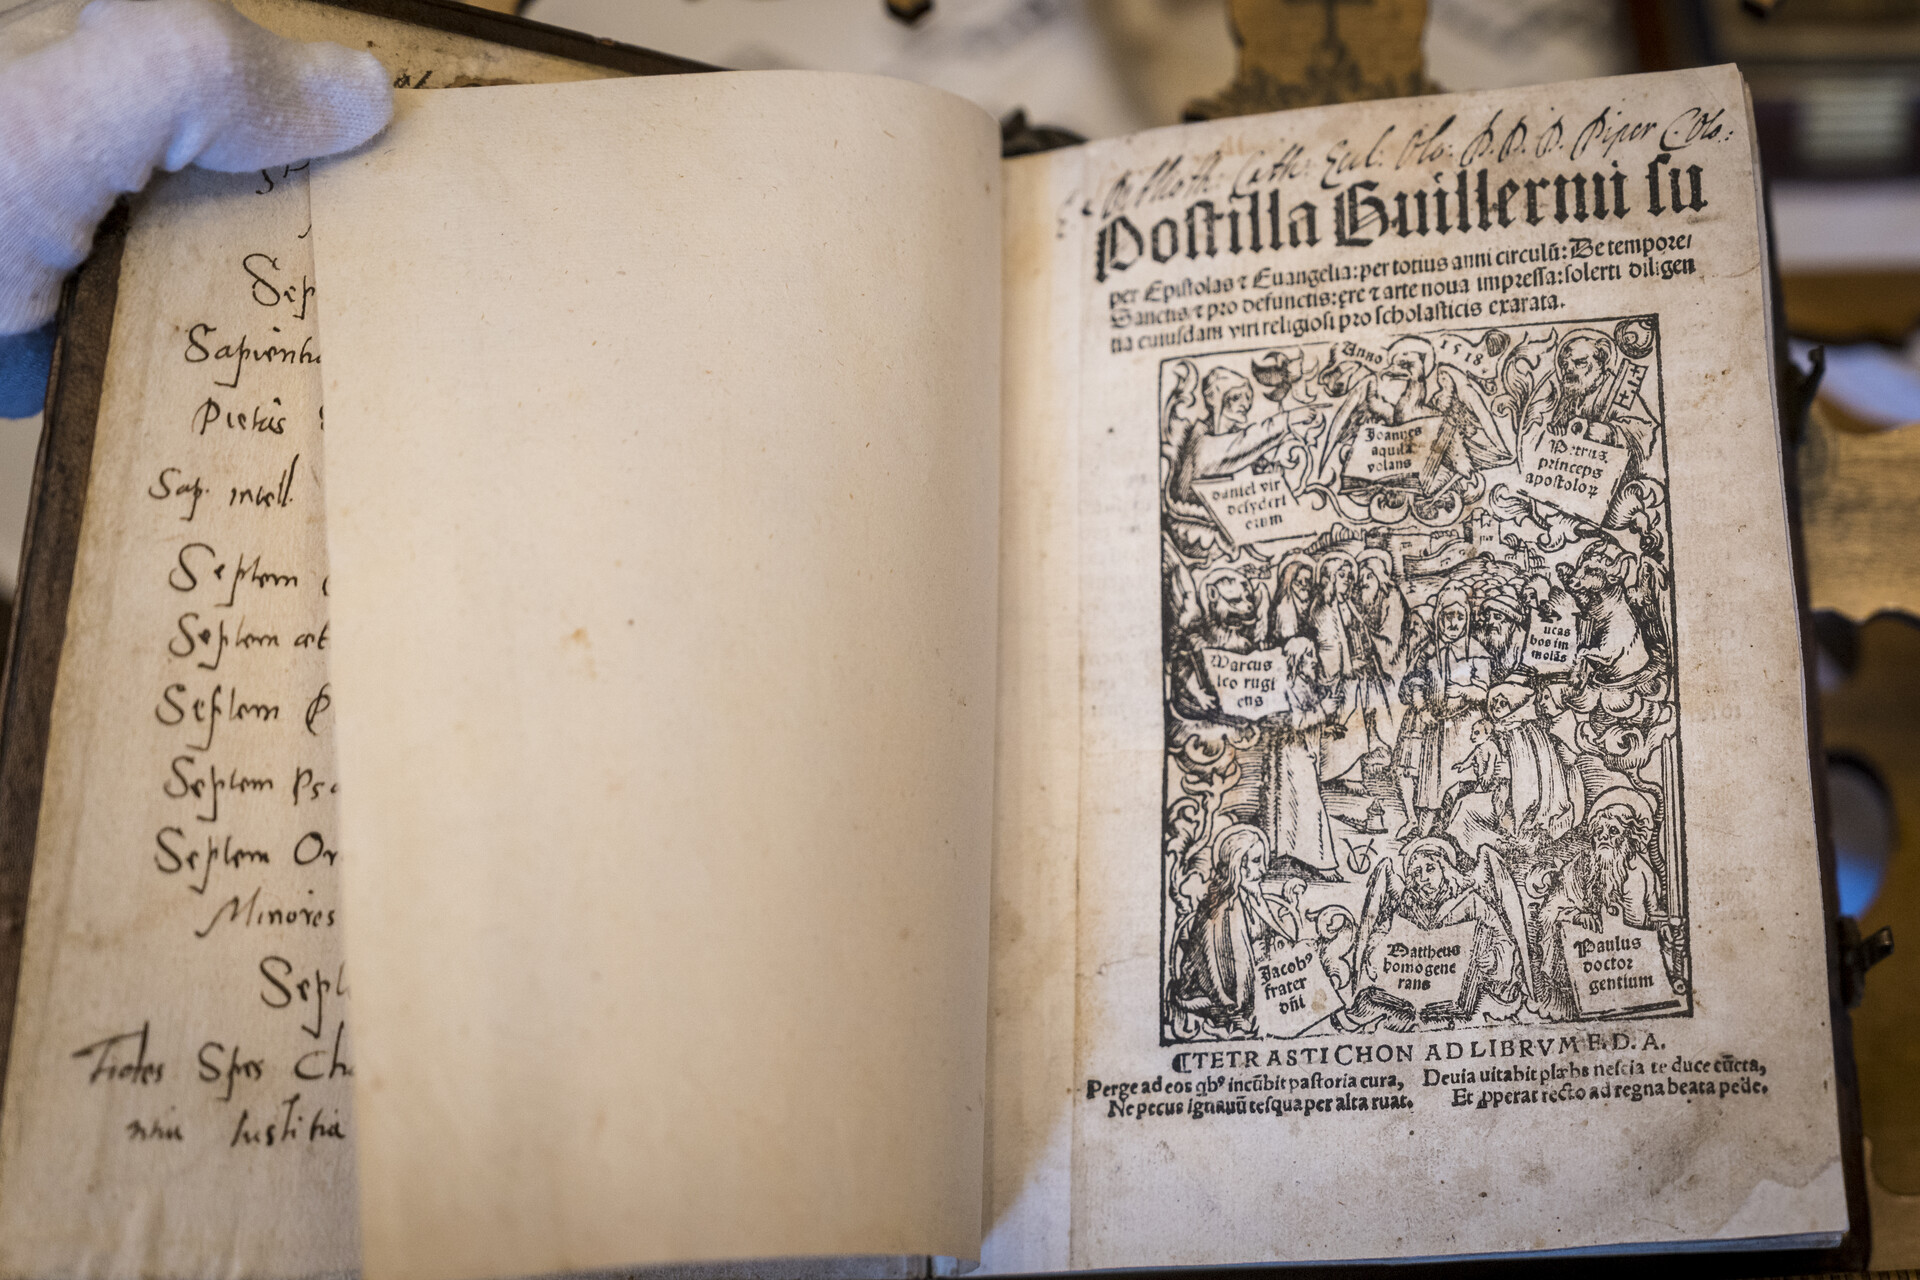 Sep
Sapientia
Pietas
Sap. intell.
Septem
Septem æt
Septem P
Septem Ps
Septem Or
Minores
Sept
Fides Spes Cha
nnia Iustitia
Cath: Eccl: Olo: D. D. D. Piper C. Olo:
Postilla Guillermi su
per Epistolas ⁊ Euangelia: per totius anni circulū: De tempore/
Sanctis/ ⁊ pro defunctis: ere ⁊ arte noua impressa: solerti diligen
tia cuiusdam viri religiosi pro scholasticis exarata.
Anno 1518
Daniel vir
desyderi
orum
Joannes
aquila
volans
Petrus
princeps
apostoloꝝ
Marcus
leo rugi
ens
ucas
bos im
molās
Jacobꝰ
frater
dñi
Mattheus
homo gene
rans
Paulus
doctor
gentium
⁋TETRASTICHON AD LIBRVM F. D. A.
Perge ad eos qbꝰ incūbit pastoria cura,
Ne pecus ignauū tesqua per alta ruat.
Deuia uitabit plæbs nescia te duce cūcta,
Et ꝓperat recto ad regna beata pede.